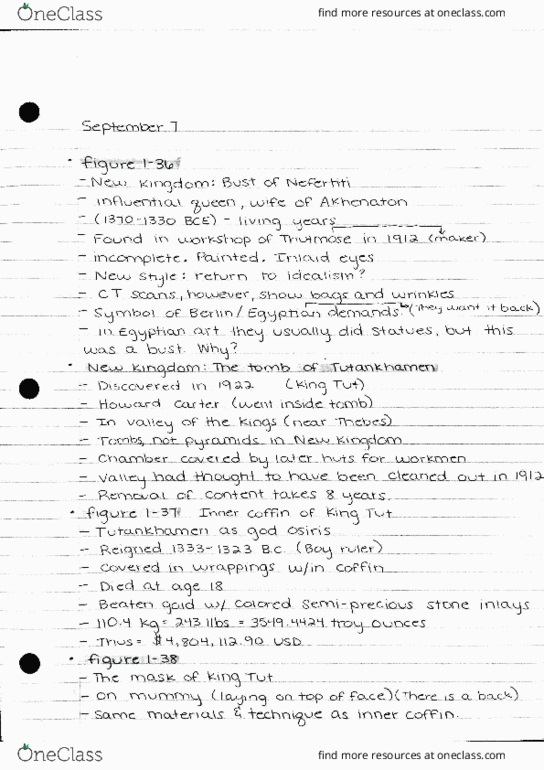 OneClass find more resources at oneclass.com
September 7
• figure 1-36
- New Kingdom: Bust of Nefertiti
- influential queen, wife of Akhenaton
- (1370-1330 BCE) - living years
- Found in workshop of Thutmose in 1912 (maker)
- incomplete. Painted. Inlaid eyes
- New style: return to idealism?
- CT scans, however, show bags and wrinkles
- Symbol of Berlin/Egyptian demands. (They want it back)
- in Egyptian art they usually did statues, but this
was a bust. Why?
• New Kingdom: The tomb of Tutankhamen
- Discovered in 1922 (King Tut)
- Howard Carter (went inside tomb)
- In valley of the Kings (near Thebes)
- Tombs, not pyramids in New Kingdom
- Chamber covered by later huts for workmen
- Valley had thought to have been cleaned out in 1912
- Removal of content takes 8 years.
• figure 1-37 Inner coffin of King Tut
- Tutankhamen as god Osiris
- Reigned 1333-1323 B.C. (Boy ruler)
- Covered in wrappings w/in coffin
- Died at age 18
- Beaten gold w/ colored semi-precious stone inlays
- 110.4 kg = 243.11bs = 3549.4424 troy ounces
- Thus = $4,804,112.90 USD
• figure 1-38
- The mask of King Tut
- on mummy (laying on top of face) (There is a back)
- same materials & technique as inner coffin.
OneClass find more resources at oneclass.com